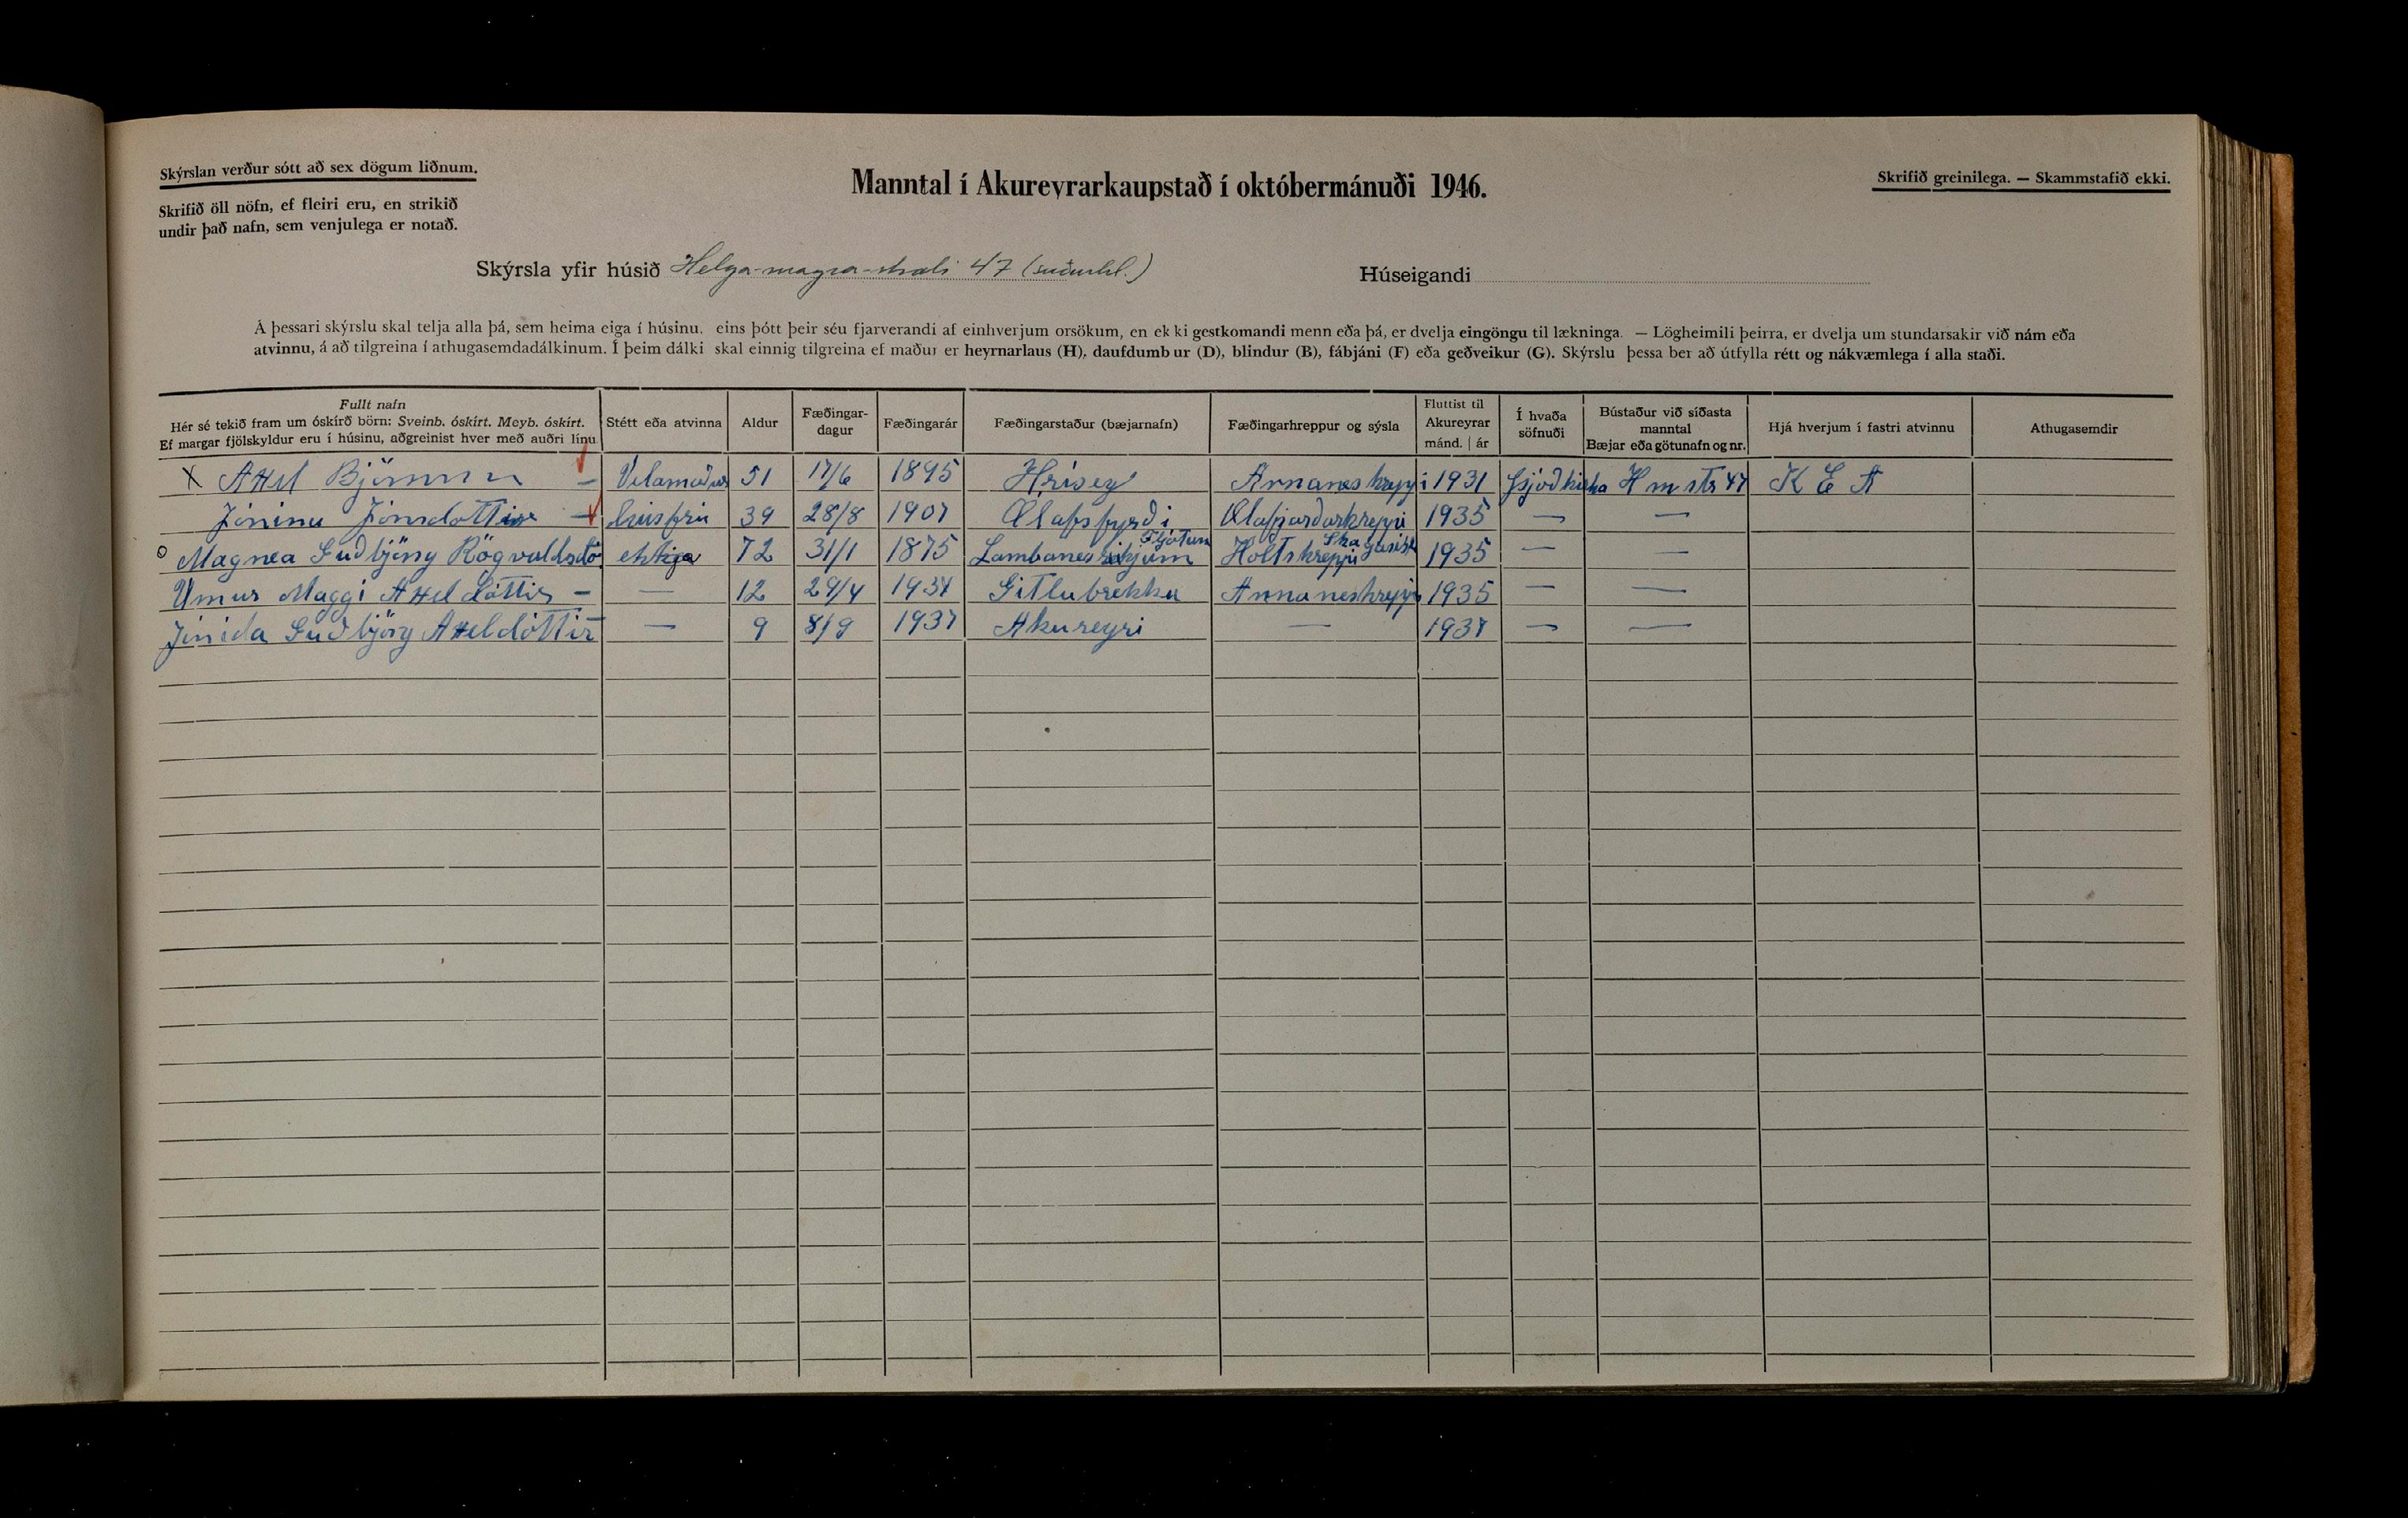 Skýrslan verður sótt að sex dögum liðnum.
Skrifið öll nöfn, ef fleiri eru, en strikið
undir það nafn, sem venjulega er notað.
Manntal í Akureyrarkaupstað í októbermánuði 1946.
Skrifið greinilega. — Skammstafið ekki.
Skýrsla yfir húsið Helga-magra-stræti 47 (suðurhl.) Húseigandi
Á þessari skýrslu skal telja alla þá, sem heima eiga í húsinu, eins þótt þeir séu fjarverandi af einhverjum orsökum, en ekki gestkomandi menn eða þá, er dvelja eingöngu til lækninga. — Lögheimili þeirra, er dvelja um stundarsakir við nám eða
atvinnu, á að tilgreina í athugasemdadálkinum. Í þeim dálki skal einnig tilgreina ef maður er heyrnarlaus (H), daufdumbur (D), blindur (B), fábjáni (F) eða geðveikur (G). Skýrslu þessa ber að útfylla rétt og nákvæmlega í alla staði.
Fullt nafn
Hér sé tekið fram um óskírð börn: Sveinb. óskírt. Meyb. óskírt.
Ef margar fjölskyldur eru í húsinu, aðgreinist hver með auðri línu
Stétt eða atvinna
Aldur
Fæðingar-
dagur
Fæðingarár
Fæðingarstaður (bæjarnafn)
Fæðingarhreppur og sýsla
Fluttist til
Akureyrar
mánd. | ár
Í hvaða
söfnuði
Bústaður við síðasta
manntal
Bæjar eða götunafn og nr.
Hjá hverjum í fastri atvinnu
Athugasemdir
X Axel Björnsson – 51 17/6 1895 Hrísey Arnaneshreppi 1931 Þjóðkirkja H m str 47 K E A
Jónína Jónsdóttir – húsfrú 39 28/8 1907 Ólafsfyrði Ólafsjarðarhreppi 1935 — —
Fljótum Skagafirði
o Magnea Guðbjörg Rögvaldsdó ekkja 72 31/1 1875 Lambanes Holtshreppi 1935 — —
Maggí Axeldóttir – — 12 29/4 1934 Gitlubrekku Arnaneshreppi 1935 — —
Guðbjörg Axeldóttir — 9 8/9 1937 Akureyri — 1937 — —